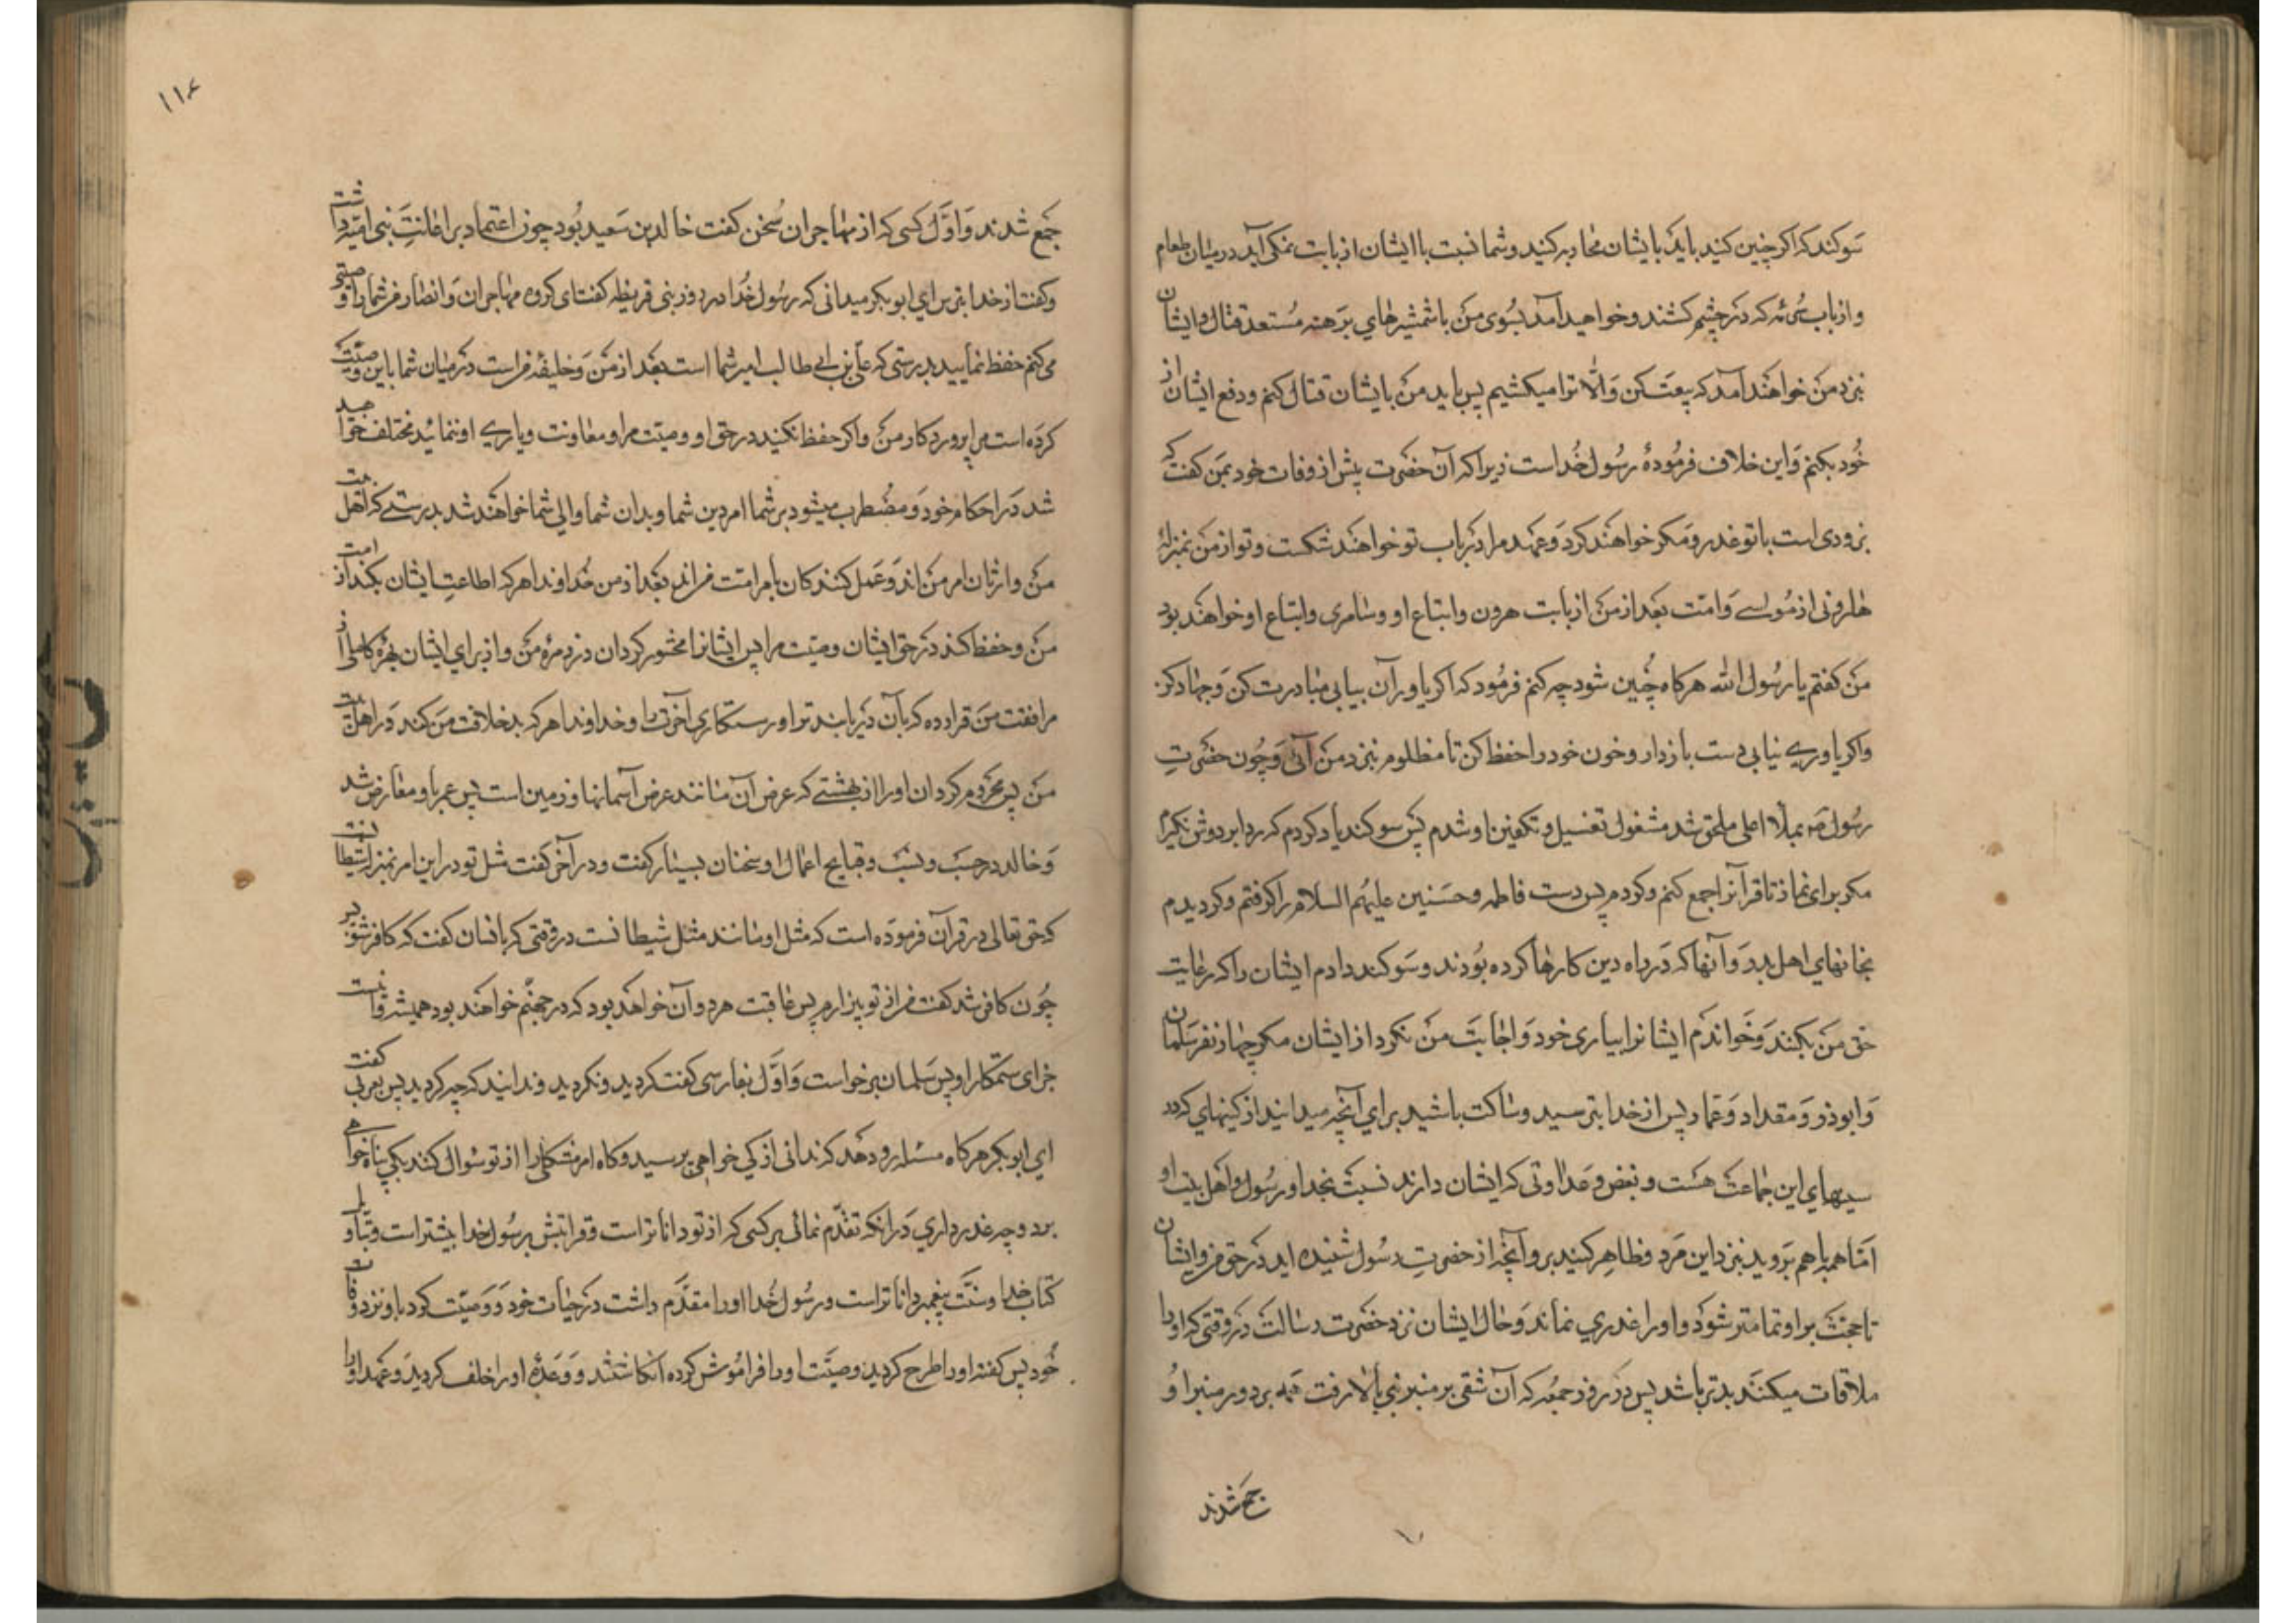 سوکند که اکر چنین کنید باید با ایشان محاربه کنید و شما نسبت با ایشان از بابت نمکی آید در میان طعام
و از باب سرمه که در چشم کشند و خواهید آمد بسوی من با شمشیرهای برهنه مستعد قتال و ایشان
نزد من خواهند آمد که بیعت کن و الّا ترا میکشیم پس باید من با ایشان قتال کنم و دفع ایشان از
خود بکنم و این خلاف فرمودهٔ رسول خداست زیرا که آن حضرت پیش از وفات خود بمن کفت که
بزودی امت با تو غدر و مکر خواهند کرد و عهد مرا در باب تو خواهند شکست و تو از من بمنزلهٔ
هارونی از موسی و امت بعد از من از بابت هرون و اتباع او و سامری و اتباع او خواهند بود
من کفتم یا رسول الله هرکاه چنین شود چه کنم فرمود که اکر یاور آن بیابی مبادرت کن و جهاد کن
و اکر یاوری نیابی دست بازدار و خون خود را حفظ کن تا مظلوم نزد من آئی و چون حضرت
رسول ص بملأ اعلی ملحق شد مشغول تغسیل و تکفین او شدم پس سوکند یاد کردم که ردا بر دوش نکیرم
مکر برای نماز تا قرآنرا جمع کنم و کردم پس دست فاطمه و حسنین علیهم السلام را کرفتم و کردیدم
بخانهای اهل بدر و آنها که در راه دین کارها کرده بودند و سوکند دادم ایشان را که رعایت
حق من بکنند و خواندم ایشانرا بیاری خود و اجابت من نکرد از ایشان مکر چهار نفر سلمان
و ابوذر و مقداد و عمار پس از خدا بترسید و ساکت باشید برای آنچه میدانید از کینهای که در
سینهای این جماعت هست و بغض و عداوتی که ایشان دارند نسبت بخدا و رسول و اهل بیت او
امّا همه با هم بروید نزد این مرد و ظاهر کنید بر او آنچه از حضرت رسول شنیده اید در حق من و ایشان
تا حجت بر او تمامتر شود و او را عذری نماند و حال ایشان نزد حضرت رسالت در وقتی که او را
ملاقات میکنند بدتر باشد پس در روز جمعه که آن شقی بر منبر نبی بالا رفت همه بر دور منبر او
جمع شدند
۱۱۶
جمع شدند و اوّل کسی که از مهاجران سخن کفت خالد بن سعید بود چون اعتماد بر اعانت بنی امیّه داشت
و کفت از خدا بترس ای ابو بکر میدانی که رسول خدا در روز بنی قریظه کفت ای کروه مهاجران و انصار من شما را وصیّتی
می کنم حفظ نمایید بدرستی که علی بن ابی طالب امیر شما است بعد از من و خلیفهٔ من است در میان شما باین وصیّت
کرده است مرا پروردکار من و اکر حفظ نکنید در حق او وصیّت مرا و معاونت و یاری او ننمائید مختلف خواهید
شد در احکام خود و مضطرب میشود بر شما امر دین شما و بدان شما والی شما خواهند شد بدرستی که اهل بیت
من وارثان امر من اند و عمل کنندکان بامر امّت من اند بعد از من خداوندا هر که اطاعت ایشان بکند از امت
من و حفظ کند در حق ایشان وصیّت مرا پس ایشانرا محشور کردان در زمرهٔ من و از برای ایشان بهرهٔ کاملی از
مرافقت من قرار ده که بآن دریابند تو او رستکاری آخرت را و خداوندا هر که بد خلافت من کند در اهل بیت
من پس محروم کردان او را از بهشتی که عرض آن مانند عرض آسمانها و زمین است پس عمر با او معارض شد
و خالد در حسب و نسب و قبایح اعمال او سخنان بسیار کفت و در آخر کفت مثل تو در این امر بمنزلهٔ شیطانست
که حق تعالی در قرآن فرموده است که مثل او مانند مثل شیطانست در وقتی که بانسان کفت که کافر شو پس
چون کافر شد کفت من از تو بیزارم پس عاقبت هر دو آن خواهد بود که در جهنّم خواهند بود همیشه و اینست
جزای ستمکاران پس سلمان برخواست و اوّل بفارسی کفت کردید و نکردید و ندانید که چه کردید پس بعربی کفت
ای ابو بکر هرکاه مسئلهٔ رو دهد که ندانی از کی خواهی پرسید و کاه امر مشکلی را از تو سوال کنند بکی پناه خواهی
برد و چه عذر داری در آنکه تقدّم نمائی بر کسی که از تو داناتر است و قرابتش برسول خدا بیشتر است و بتاویل
کتاب خدا و سنّت پیغمبر داناتر است و رسول خدا او را مقدّم داشت در حیات خود و وصیّت کرد باو نزد وفات
خود پس کفتهٔ او را طرح کردید و وصیّت او را فراموش کرده انکاشتند و وعدهٔ او را خلف کردید و عهد او را